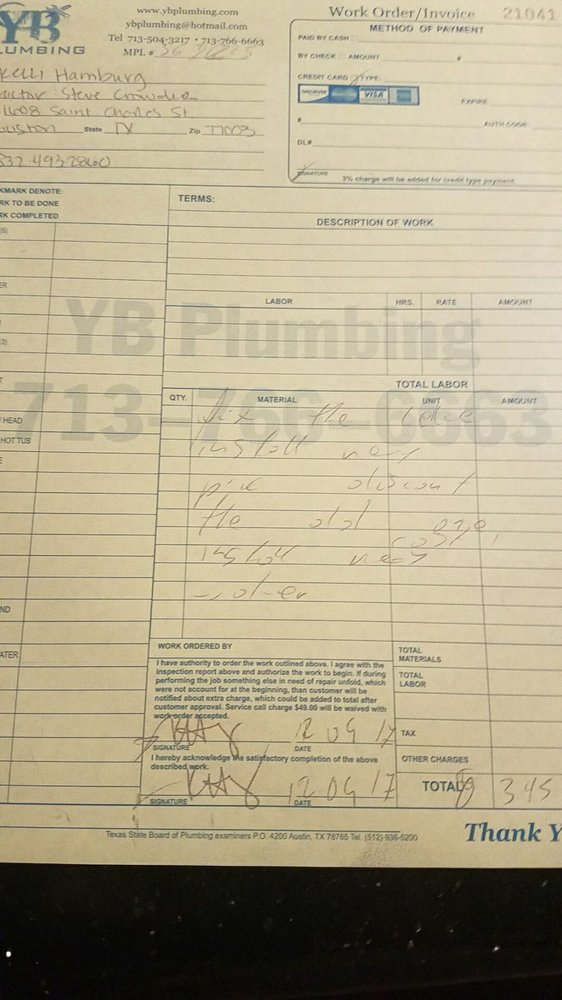 YB
LUMBING
www.ybplumbing.com
ybplumbing@hotmail.com
Tel 713-504-3217 • 713-766-6663
MPL #
Work Order/Invoice 21041
METHOD OF PAYMENT
PAID BY CASH
BY CHECK AMOUNT #
CREDIT CARD TYPE
DISCOVER VISA
EXPIRE
# AUTH CODE
DL#
SIGNATURE
3% charge will be added for credit type payment
Kelli Hamburg
actor Steve Crowder
1608 Saint Charles St.
ouston State TX Zip 77003
832-493-2860
KMARK DENOTE:
RK TO BE DONE
RK COMPLETED
TERMS:
DESCRIPTION OF WORK
(S)
ER
LABOR HRS. RATE AMOUNT
YB Plumbing
3)
T
TOTAL LABOR
QTY. MATERIAL UNIT AMOUNT
713-766-6663
HEAD
fix the
HOT TUB
install new
E
the old
install new
ND
ATER
WORK ORDERED BY
I have authority to order the work outlined above. I agree with the
inspection report above and authorize the work to begin. If during
performing the job something else in need of repair unfold, which
were not account for at the beginning, than customer will be
notified about extra charge, which could be added to total after
customer approval. Service call charge $49.00 will be waived with
work order accepted.
TOTAL
MATERIALS
TOTAL
LABOR
TAX
12 09 17
SIGNATURE DATE
I hereby acknowledge the satisfactory completion of the above
described work.
OTHER CHARGES
12 09 17
SIGNATURE DATE
TOTAL 345
Texas State Board of Plumbing examiners P.O. 4200 Austin, TX 78765 Tel. (512) 936-5200
Thank Y